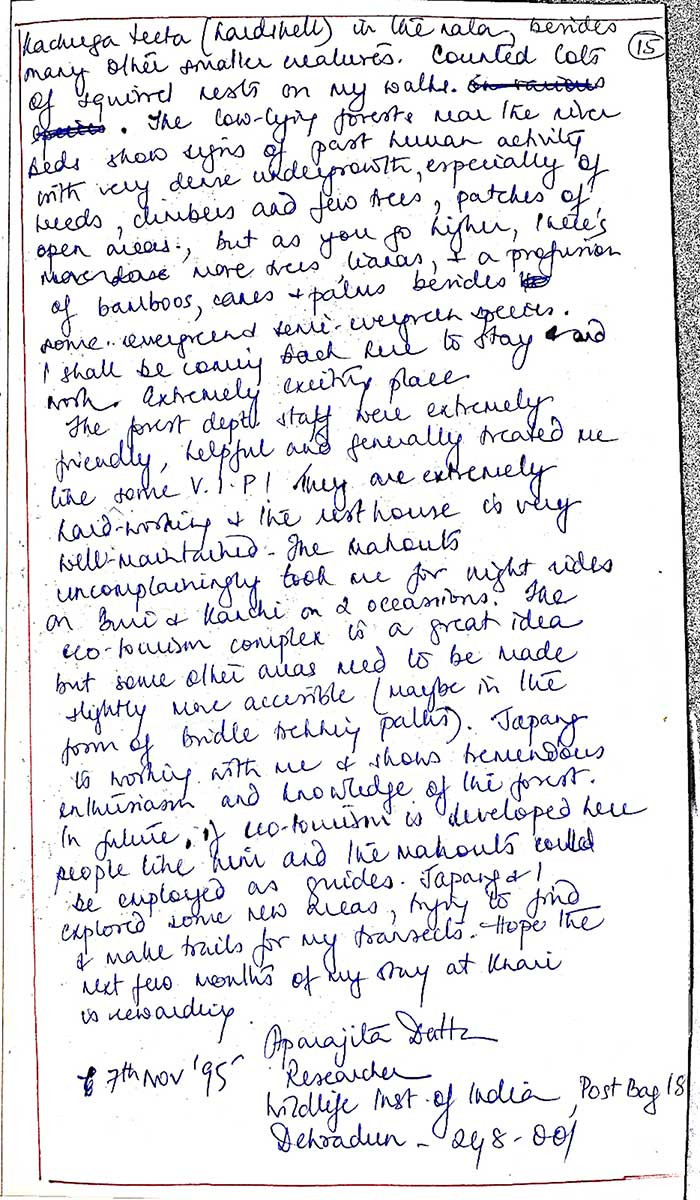 Kachuga tecta (hardshell) in the nala, besides
15
many other smaller creatures. Counted lots
of squirrel nests on my walks. on various
species. The low-lying forests near the river
beds show signs of past human activity
with very dense undergrowth, especially of
weeds, climbers and few trees, patches of
open areas, but as you go higher, there's
more trees, lianas, & a profusion
of bamboos, canes & palms besides
some evergreen & semi-evergreen species.
I shall be coming back here to stay and
work. Extremely exciting place.
The forest dept. staff were extremely
friendly, helpful and generally treated me
like some V.I.P! They are extremely
hard-working & the rest house is very
well-maintained. The mahouts
uncomplainingly took me for night rides
on & on 2 occassions. The
eco-tourism complex is a great idea
but some other areas need to be made
slightly more accesible (maybe in the
form of bridle trekking paths). Japang
is working with me & shows tremendous
enthusiasm and knowledge of the forest.
In future, if eco-tourism is developed here
people like him and the mahouts could
be employed as guides. Japang & I
explored some new areas, trying to find
& make trails for my transects. Hope the
next few months of my stay at Khari
is rewarding.
Aparajita Datta
7th Nov '95
Researcher
Wildlife Inst. of India, Post Bag 18
Dehradun - 248-001